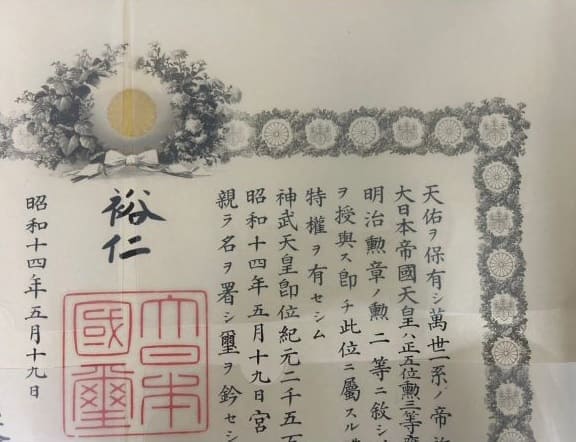 天佑ヲ保有シ萬世一系ノ帝
大日本帝國天皇ハ正五位勲三等
明治勲章ノ勲二等ニ敍シ
ヲ授與ス即チ此位ニ屬スル
特權ヲ有セシム
神武天皇即位紀元二千五
昭和十四年五月十九日宮
親ラ名ヲ署シ璽ヲ鈐セシ
裕仁
大日本
國璽
昭和十四年五月十九日